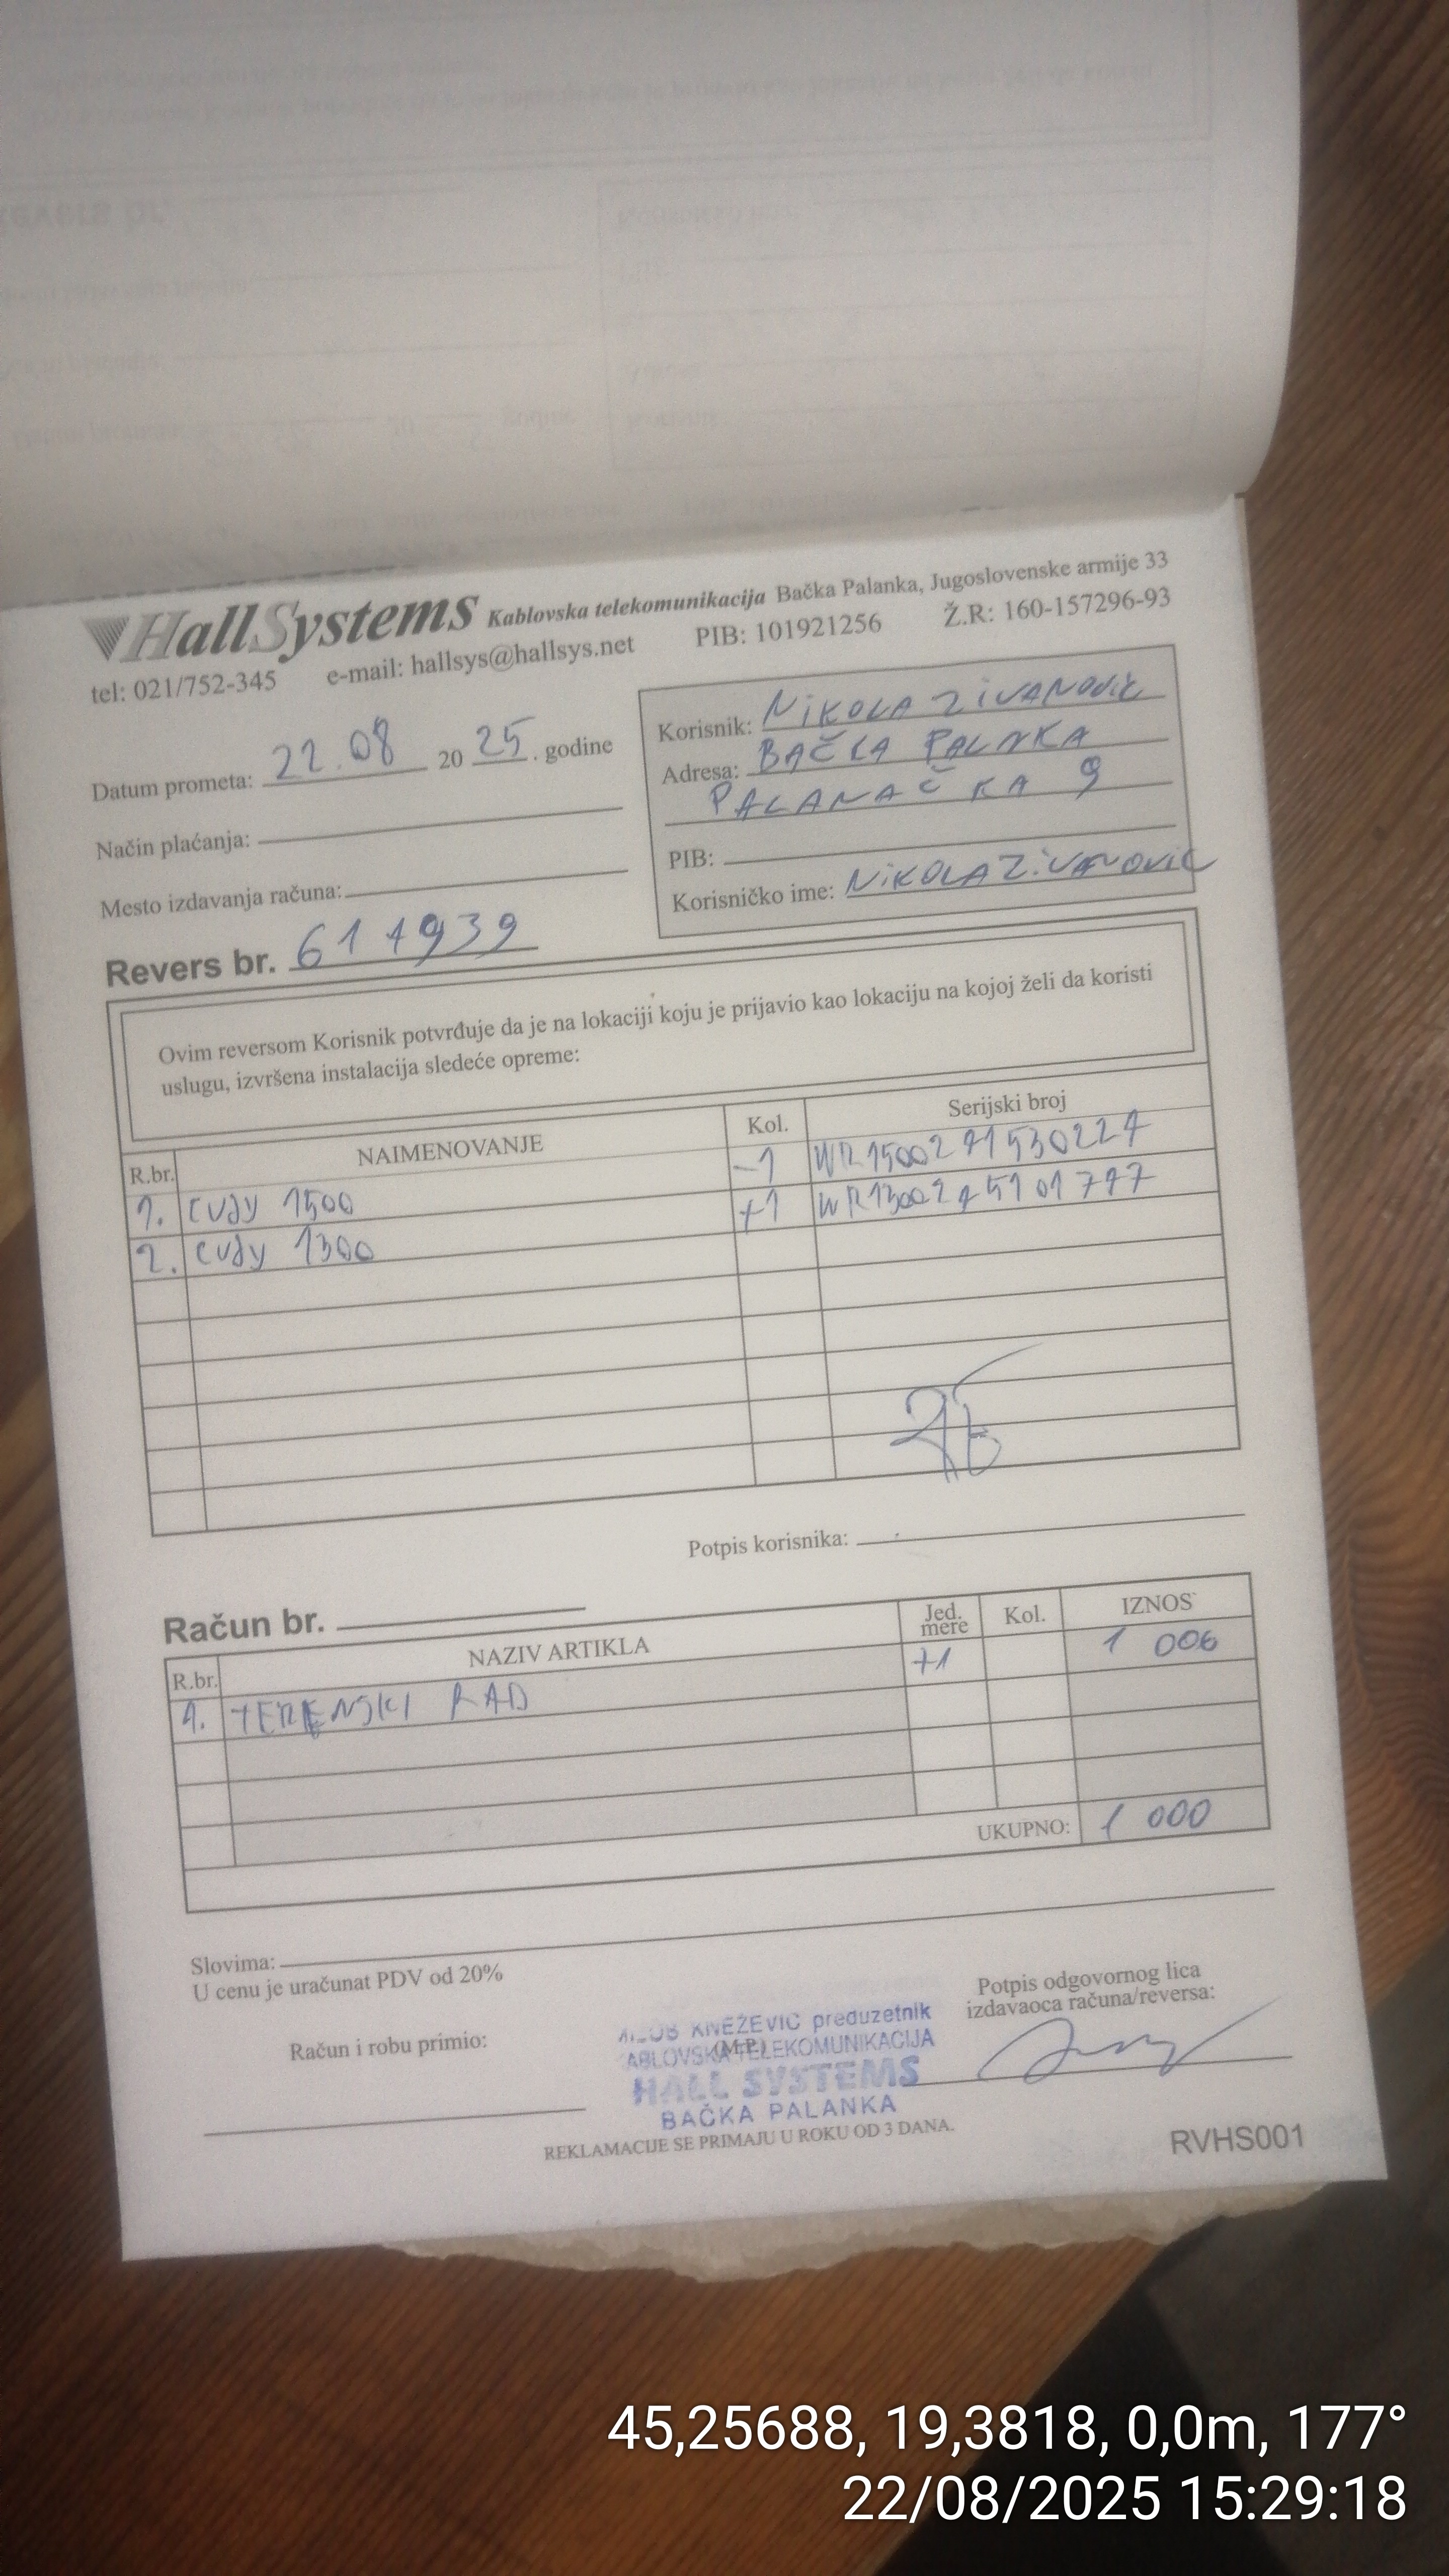 HallSystems Kablovska telekomunikacija Bačka Palanka, Jugoslovenske armije 33
tel: 021/752-345 e-mail: hallsys@hallsys.net PIB: 101921256 Ž.R: 160-157296-93
Datum prometa: 22.08 20 25. godine
Način plaćanja:
Mesto izdavanja računa:
Korisnik: NIKOLA ZIVANOVIC
Adresa: BAČKA PALNKA
PALANAČKA 9
PIB:
Korisničko ime: NIKOLA ZIVANOVIC
Revers br. 611939
Ovim reversom Korisnik potvrđuje da je na lokaciji koju je prijavio kao lokaciju na kojoj želi da koristi
uslugu, izvršena instalacija sledeće opreme:
R.br. NAIMENOVANJE Kol. Serijski broj
1. cudy 1500 -1
2. cudy 1300 +1
Potpis korisnika:
Račun br.
R.br. NAZIV ARTIKLA Jed. mere Kol. IZNOS
1. TERENSKI RAD +1 1 000
UKUPNO: 1 000
Slovima:
U cenu je uračunat PDV od 20%
Račun i robu primio:
KNEŽEVIĆ preduzetnik
(M.P.)
ABLOVSKA TELEKOMUNIKACIJA
HALL SYSTEMS
BAČKA PALANKA
Potpis odgovornog lica
izdavaoca računa/reversa:
REKLAMACIJE SE PRIMAJU U ROKU OD 3 DANA.
RVHS001
45,25688, 19,3818, 0,0m, 177°
22/08/2025 15:29:18